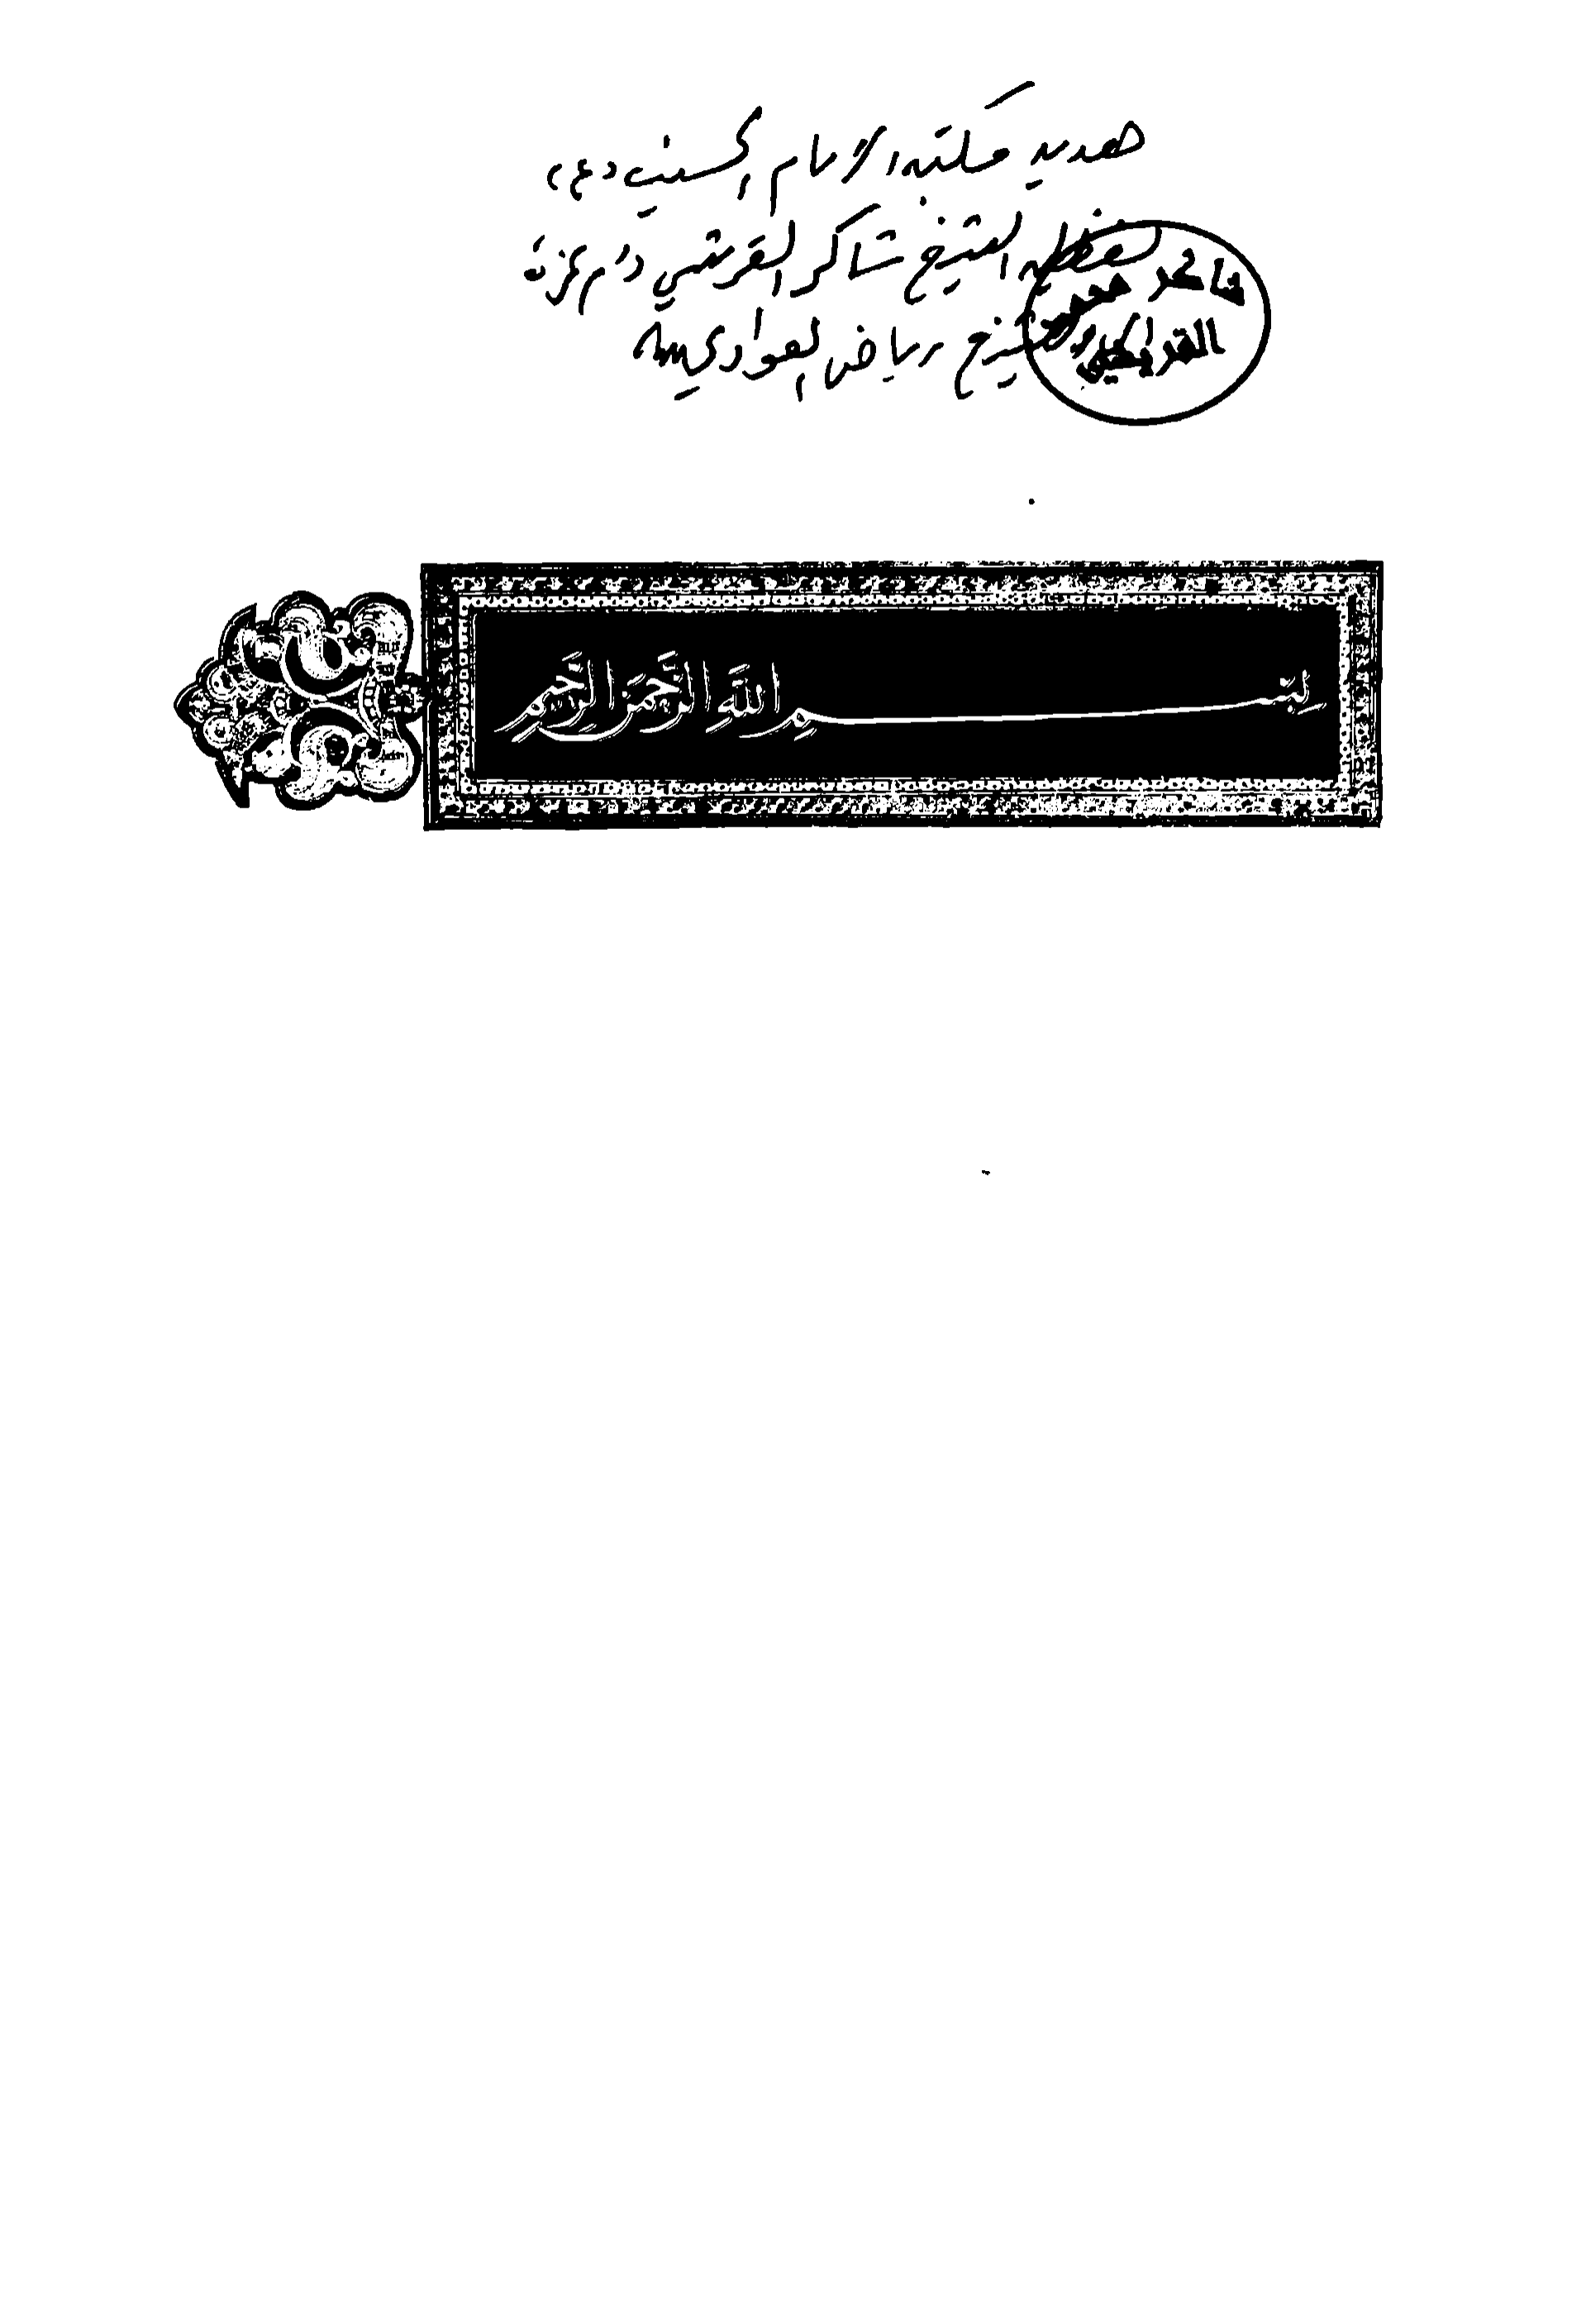 هدية مكتبة الامام الحسين (ع)
لفضيلة الشيخ شاكر القرشي دام عزه
الشيخ رياض العوادي
شاكر محمود
القريشي
بِسْمِ اللَّهِ الرَّحْمَنِ الرَّحِيمِ